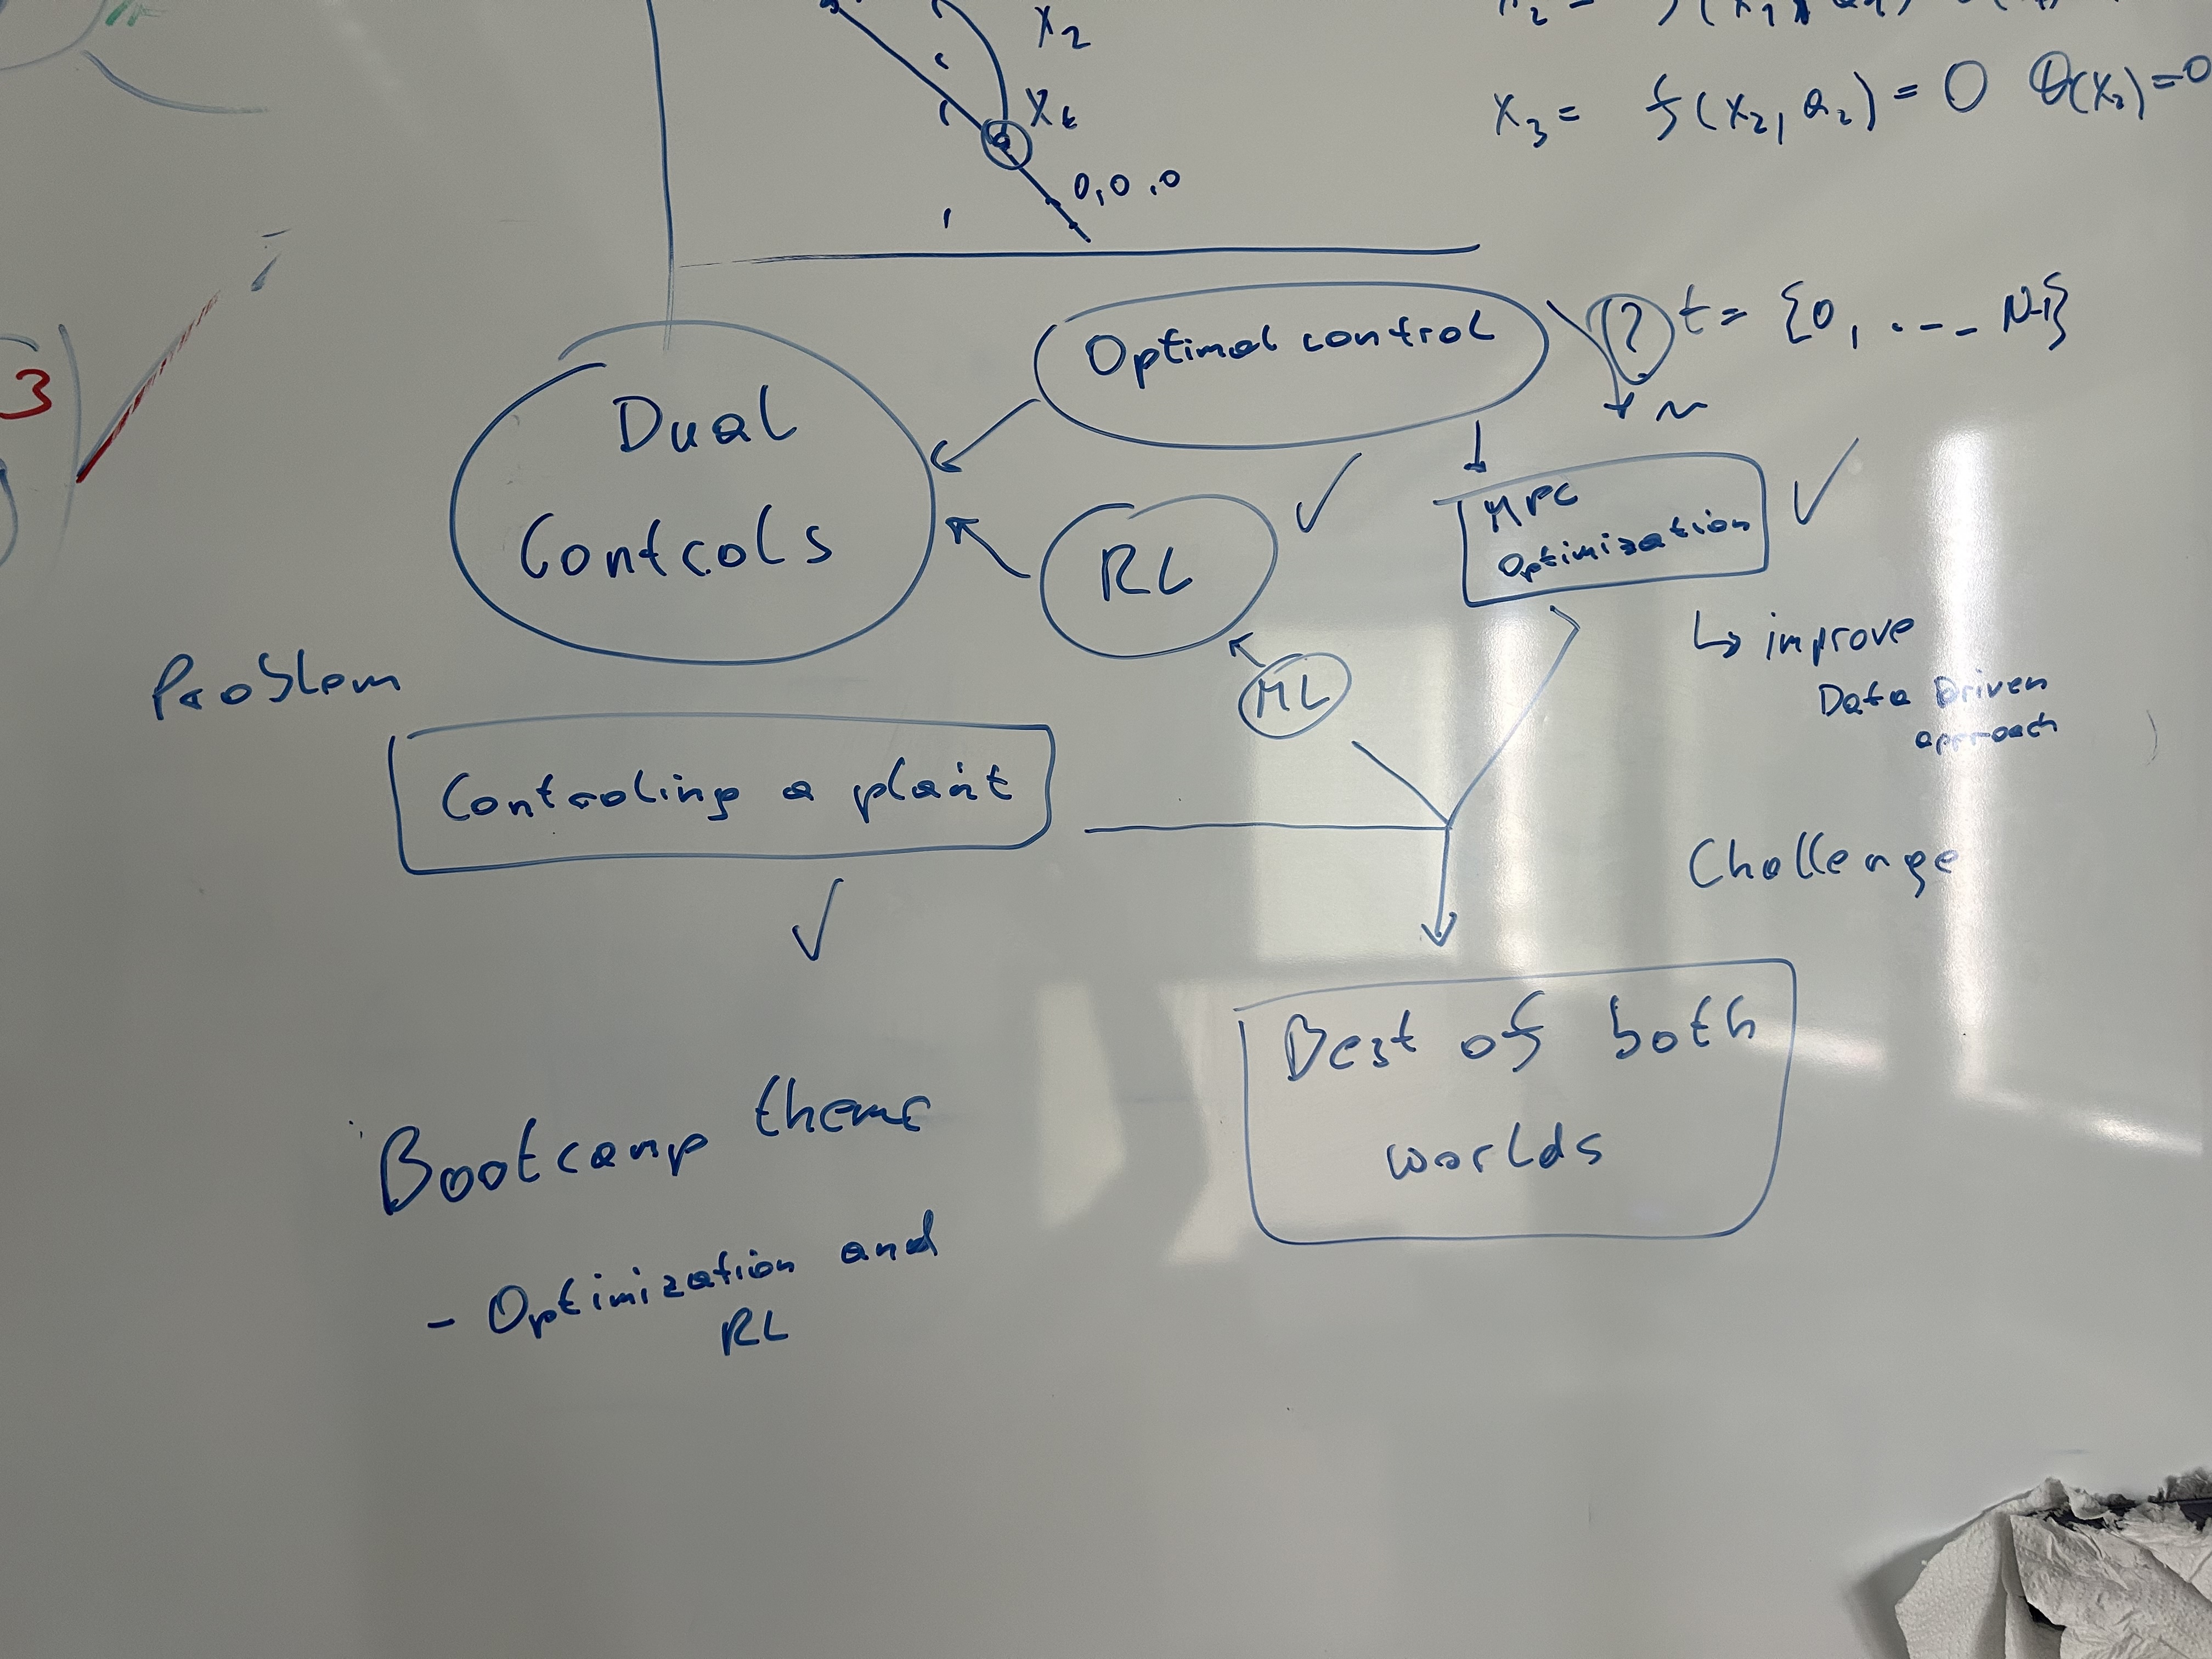 X₂
Xₜ
0, 0, 0
X₃ = f(X₂, a₂) = 0 θ(X₃) = 0
Optimal control
? t = {0, ... N-1}
N
Dual
Controls
RL
MPC
Optimization
ML
↳ improve
Data Driven
approach
Problem
Controling a plant
Challenge
Best of both
worlds
Bootcamp theme
- Optimization and
RL
3